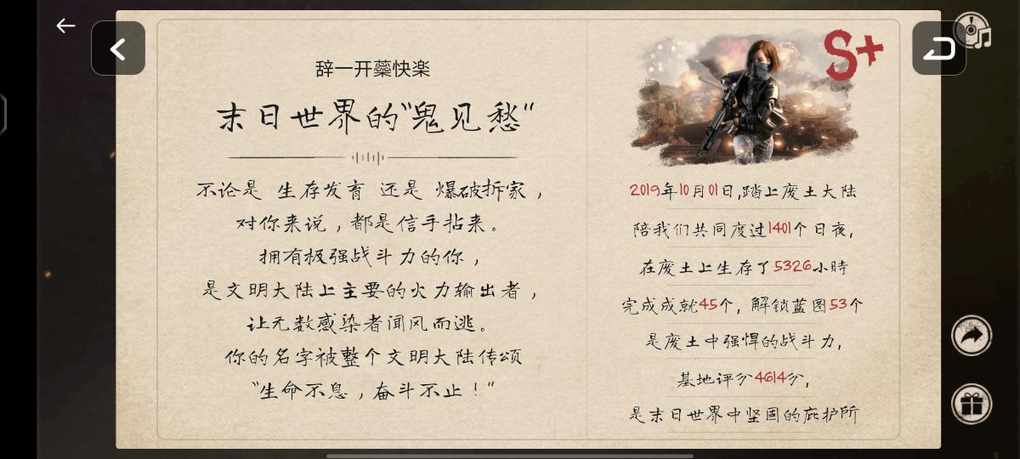 辞一开蘂快楽
末日世界的"鬼见愁"
不论是 生存发育 还是 爆破拆家，
对你来说，都是信手拈来。
拥有极强战斗力的你，
是文明大陆上主要的火力输出者，
让无数感染者闻风而逃。
你的名字被整个文明大陆传颂
"生命不息，奋斗不止！"
S+
2019年10月01日,踏上废土大陆
陪我们共同度过1401个日夜,
在废土上生存了5326小时
完成成就45个, 解锁蓝图53个
是废土中强悍的战斗力,
基地评分4614分,
是末日世界中坚固的庇护所